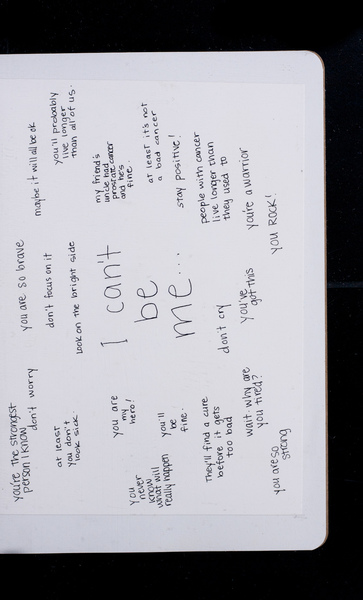 you're the strongest
person I know
you are so brave
maybe it will all be ok
don't worry
don't focus on it
you'll probably
live longer
than all of us.
at least
you don't
look sick.
look on the bright side
my friend's
uncle had
prostrate cancer
and he's
fine.
you are
my
hero!
I can't
be
me...
at least it's not
a bad cancer
you
never
know
what will
really happen
you'll
be
fine.
stay positive!
They'll find a cure
before it gets
too bad
don't cry
people with cancer
live longer than
they used to
wait. why are
you tired?
you've
got this
you're a warrior
you are so
strong
you Rock!